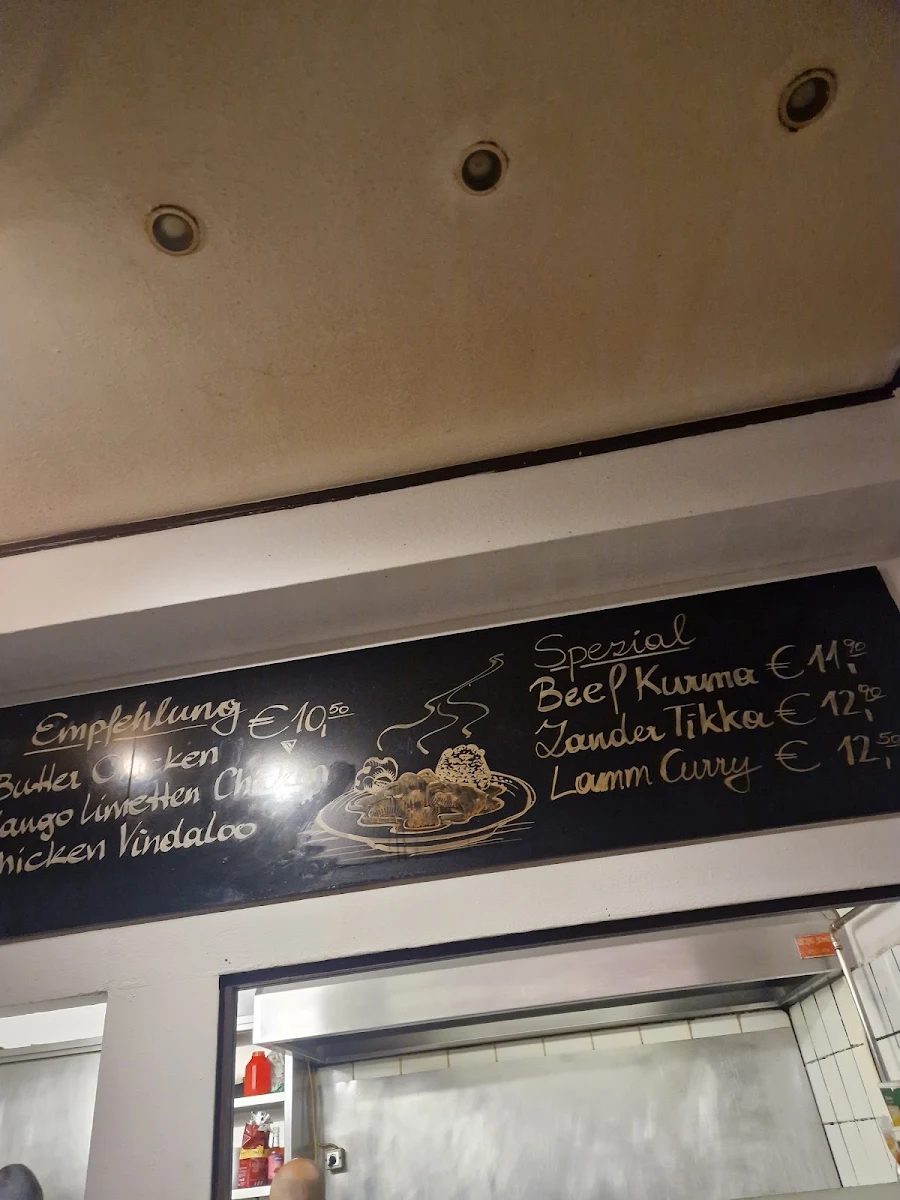 Empfehlung €10,50
Butter Chicken
Mango Limetten Chicken
Chicken Vindaloo
Spezial
Beef Kurma € 11,90
Zander Tikka € 12,90
Lamm Curry € 12,50